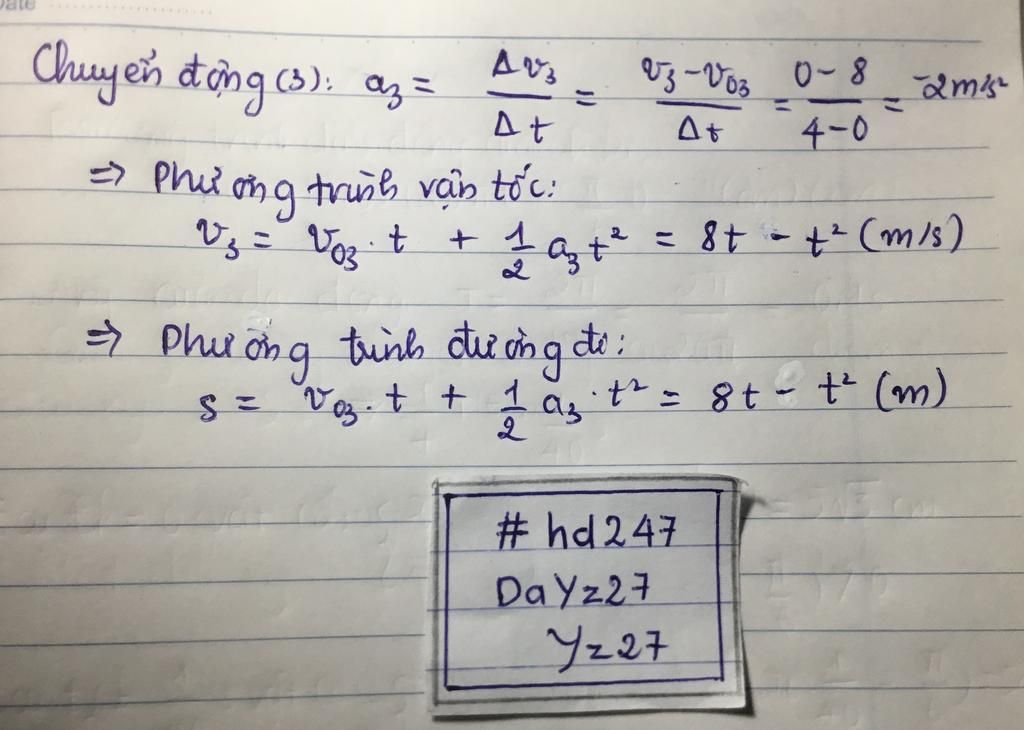 Date
Chuyển động (3): a₃ = Δv₃/Δt = v₃-v₀₃/Δt = 0-8/4-0 = -2m/s²
=> Phương trình vận tốc:
v₃ = v₀₃.t + 1/2 a₃t² = 8t - t² (m/s)
=> Phường trình đường đi:
s = v₀₃.t + 1/2 a₃.t² = 8t - t² (m)
# hd247
DaYz27
Yz27